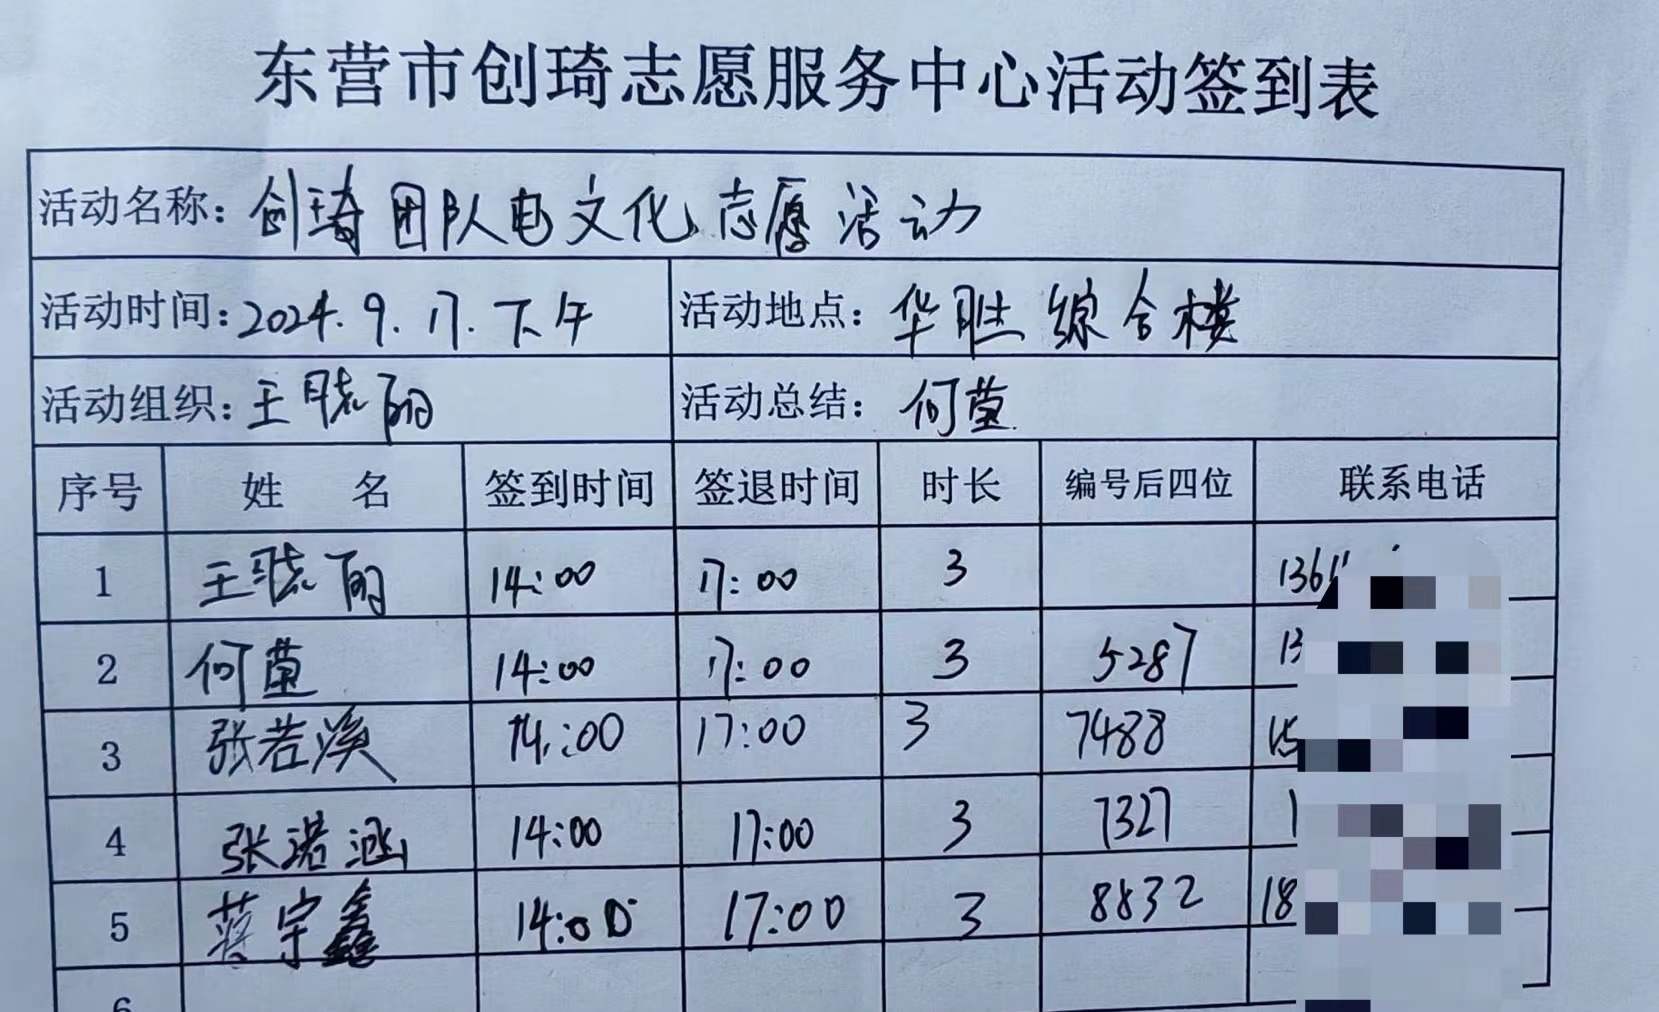 东营市创琦志愿服务中心活动签到表
活动名称：创琦团队电文化志愿活动
活动时间：2024.9.17.下午 活动地点：华胜综合楼
活动组织：王晓丽 活动总结：何莹
序号 姓 名 签到时间 签退时间 时长 编号后四位 联系电话
1 王晓丽 14:00 17:00 3
2 何莹 14:00 17:00 3 5287 13
3 张若溪 14:00 17:00 3 7488 15
4 张诺涵 14:00 17:00 3 7327 1
5 蒋宇鑫 14:00 17:00 3 8832 18
6